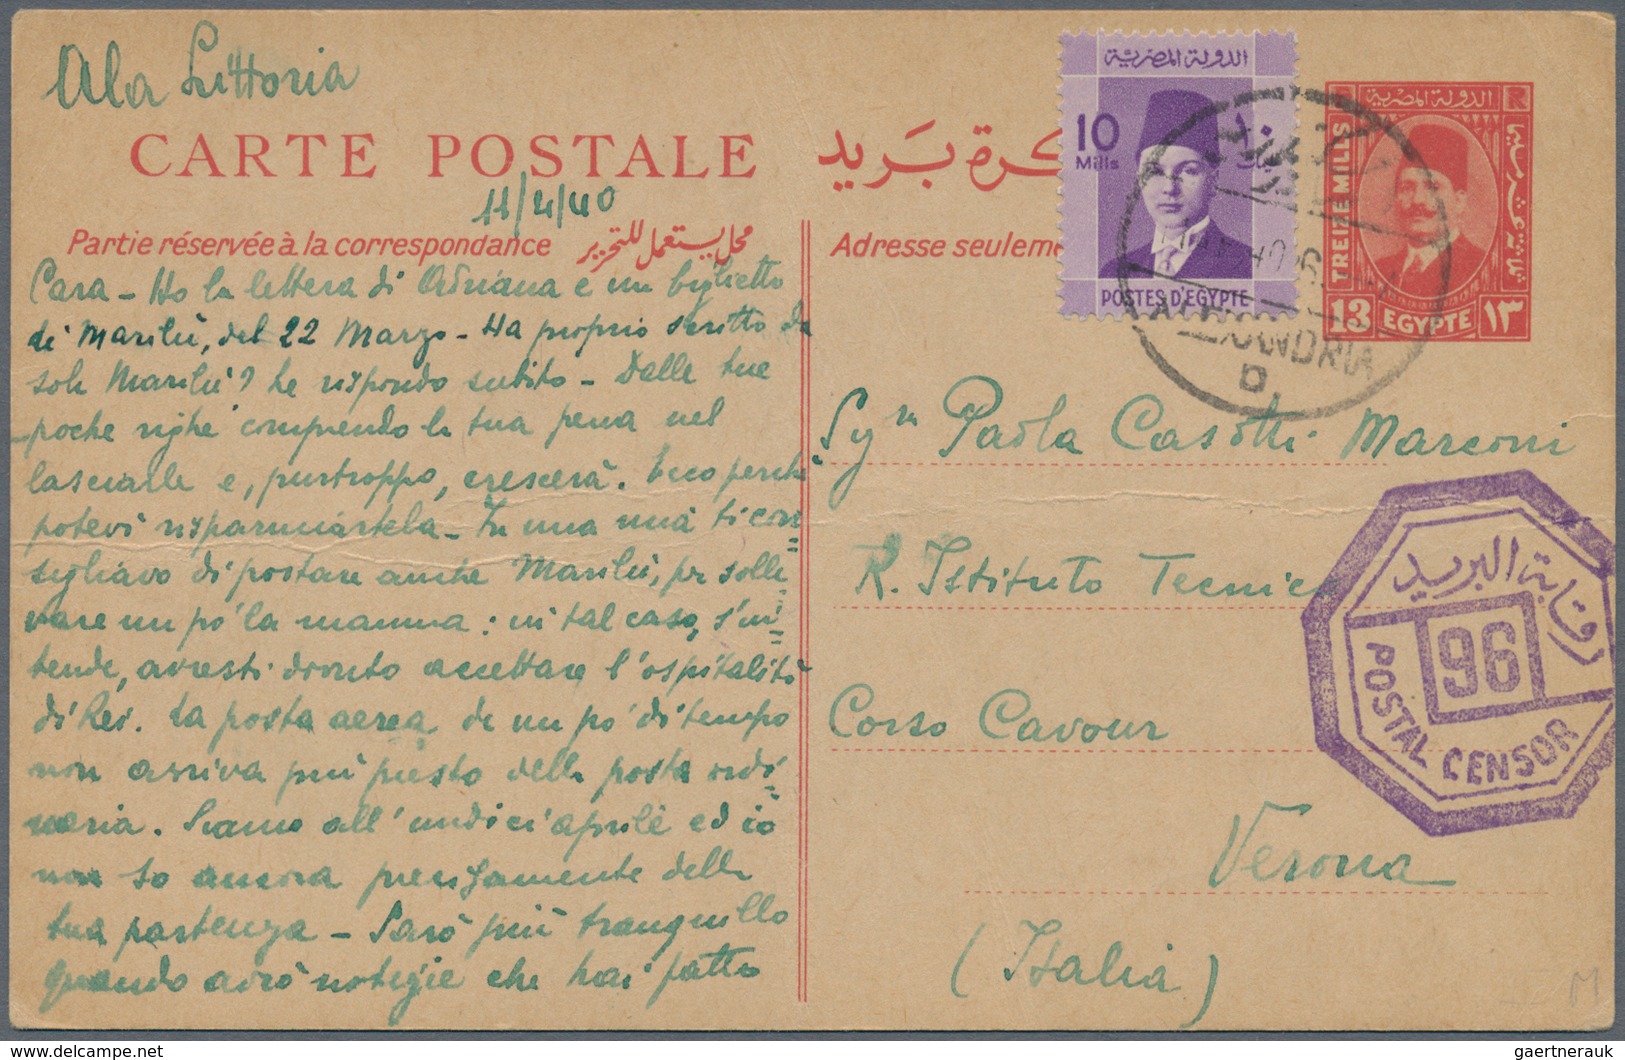 Ala Littoria
CARTE POSTALE
تذكرة بريد
11/4/40
Partie réservée à la correspondance محل يستعمل للتحرير
Adresse seuleme
الدولة المصرية
10
Mills
POSTES D'EGYPTE
الدولة المصرية
TREIZE MILLS
13 EGYPTE ١٣
ALEXANDRIA
D
Cara - Ho la lettera di Adriana e un biglietto
di Marilù, del 22 Marzo - Ha proprio scritto da
sola Marilù? Le rispondo subito - Dalle tue
poche righe comprendo la tua pena nel
lasciarle e, purtroppo, crescerà. Ecco perchè
potevi risparmiartela - In una mia ti con=
sigliavo di portare anche Marilù, per solle
vare un po' la mamma: in tal caso, s'in=
tende, avresti dovuto accettare l'ospitalità
di Rei. La posta aerea da un po' di tempo
non arriva più presto della posta ordi=
naria. Siamo all'undici aprile ed io
non so ancora precisamente della
tua partenza - Sarò più tranquillo
quando avrò notizie che hai fatto
Sgrª Paola Casotti Marconi
R. Istituto Tecnico
Corso Cavour
Verona
(Italia)
رقابة البريد
96
POSTAL CENSOR
M
delcampe.net
gaertnerauk